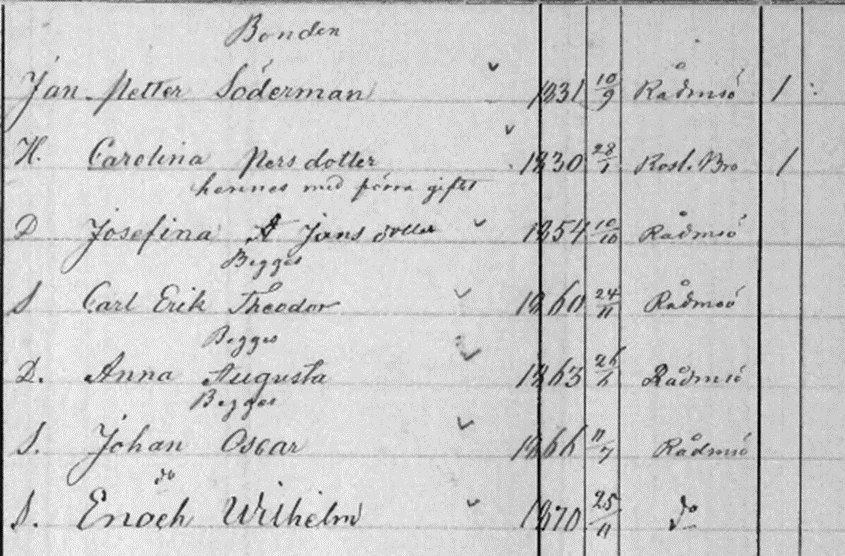 Bonden
Jan Petter Söderman 1831 10/9 Rådmsö 1
H. Carolina Persdotter 1830 28/1 Rosl. Bro 1
hennes med förra giftet
D Josefina A Jansdotter 1854 10/10 Rådmsö
Begges
S Carl Erik Theodor 1860 24/11 Rådmsö
Begges
D. Anna Augusta 1863 26/6 Rådmsö
Begges
S. Johan Oscar 1866 11/7 Rådmsö
do
S. Enoch Wilhelm 1870 25/11 do